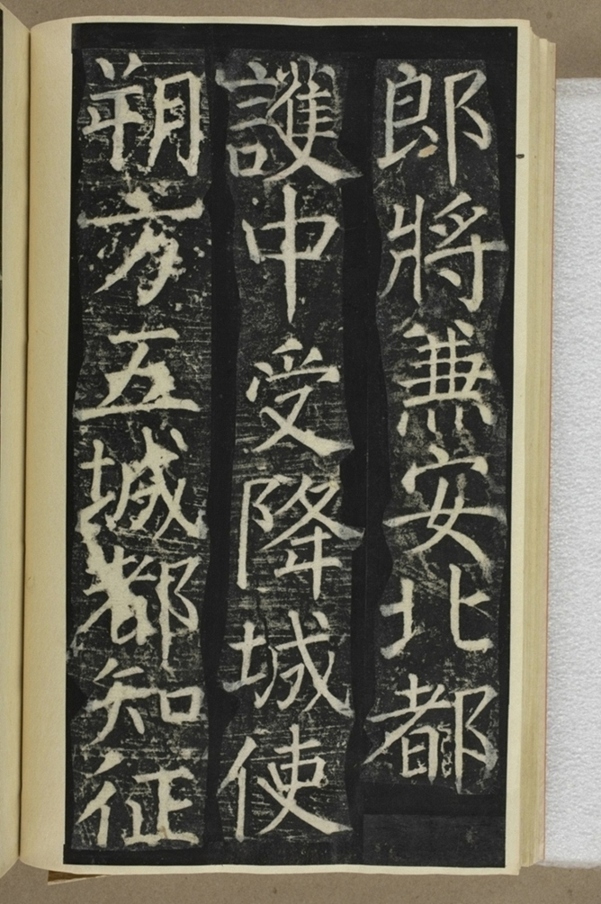 郎將兼安北都
護中受降城使
朔方五城都知征